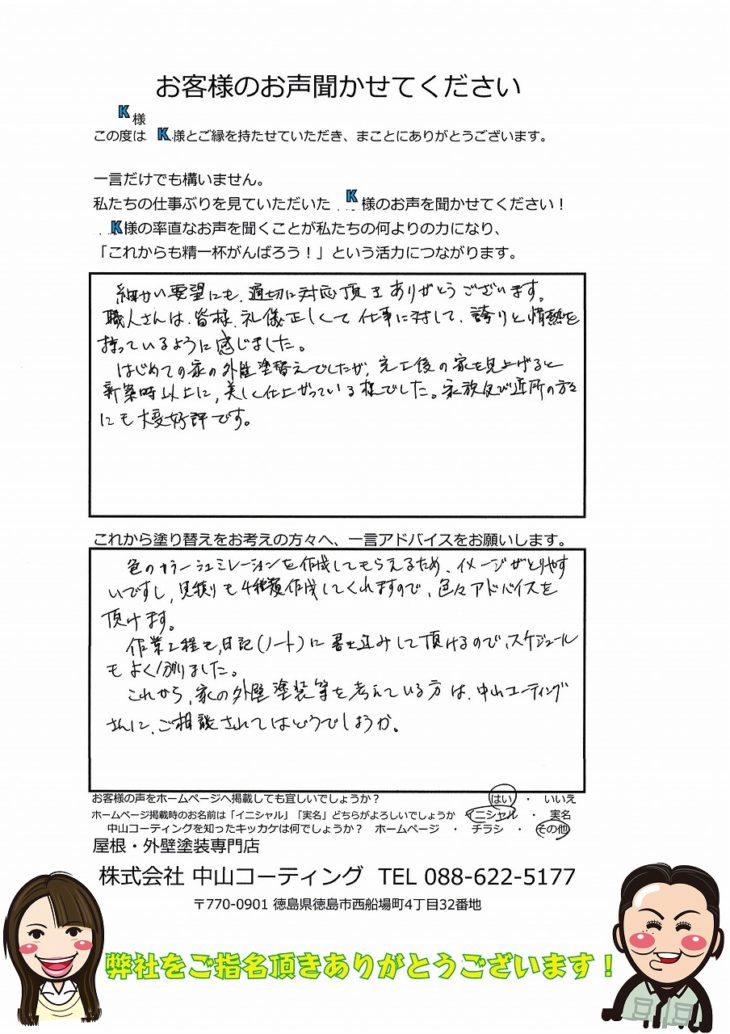 お客様のお声聞かせてください
K 様
この度は K 様とご縁を持たせていただき、まことにありがとうございます。
一言だけでも構いません。
私たちの仕事ぶりを見ていただいた K 様のお声を聞かせてください！
K 様の率直なお声を聞くことが私たちの何よりの力になり、
「これからも精一杯がんばろう！」という活力につながります。
細かい要望にも、適切に対応頂き ありがとうございます。
職人さんは、皆様、礼儀正しくて 仕事に対して、誇りと情熱を
持っているように感じました。
はじめての家の外壁塗替えでしたが、完工後の家を見上げると
新築時以上に、美しく仕上がっている様でした。家族及び近所の方々
にも大変好評です。
これから塗り替えをお考えの方々へ、一言アドバイスをお願いします。
色のカラーシュミレーションを作成してもらえるため、イメージがとりやす
いですし、見積りも4種類作成してくれますので、色々アドバイスを
頂けます。
作業工程も、日記(ノート)に書き込みして頂けるので、スケジュール
もよく分りました。
これから、家の外壁塗装等を考えている方は、中山コーティング
さんに、ご相談されてはどうでしょうか。
お客様の声をホームページへ掲載しても宜しいでしょうか？ はい ・ いいえ
ホームページ掲載時のお名前は「イニシャル」「実名」どちらがよろしいでしょうか イニシャル ・ 実名
中山コーティングを知ったキッカケは何でしょうか？ ホームページ ・ チラシ ・ その他
屋根・外壁塗装専門店
株式会社 中山コーティング TEL 088-622-5177
〒770-0901 徳島県徳島市西船場町4丁目32番地
弊社をご指名頂きありがとうございます！